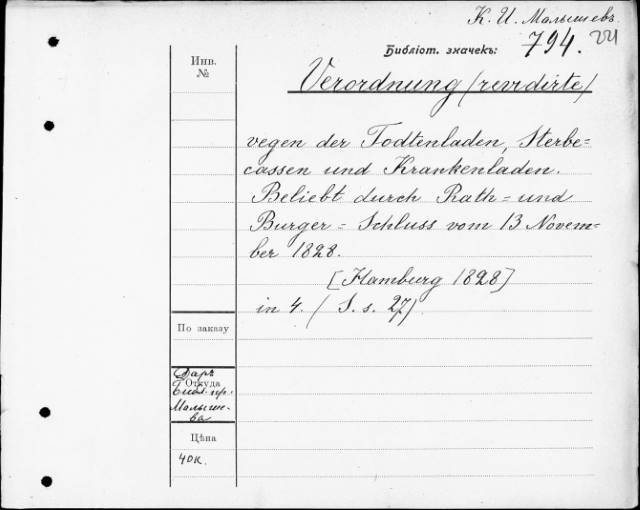 К. И. Малышевъ
Библіот. значекъ: 794. 221
Инв.
№
Verordnung (revidirte)
wegen der Todtenladen, Sterbe=
cassen und Krankenladen.
Beliebt durch Rath= und
Burger= Schluss vom 13 Novem=
ber 1828.
[Hamburg 1828]
in 4. ( S. s. 27)
По заказу
Даръ
Откуда
Библ. пр.
Малыше-
ва
Цѣна
40к.